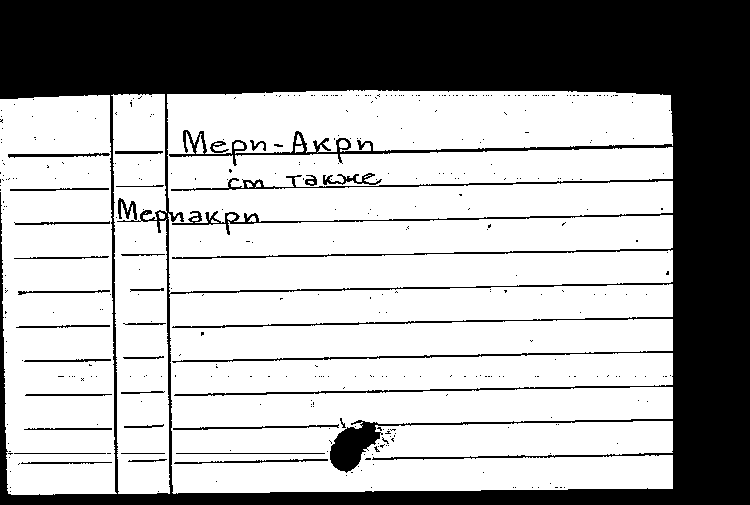 Мери-Акри
см также
Мериакри